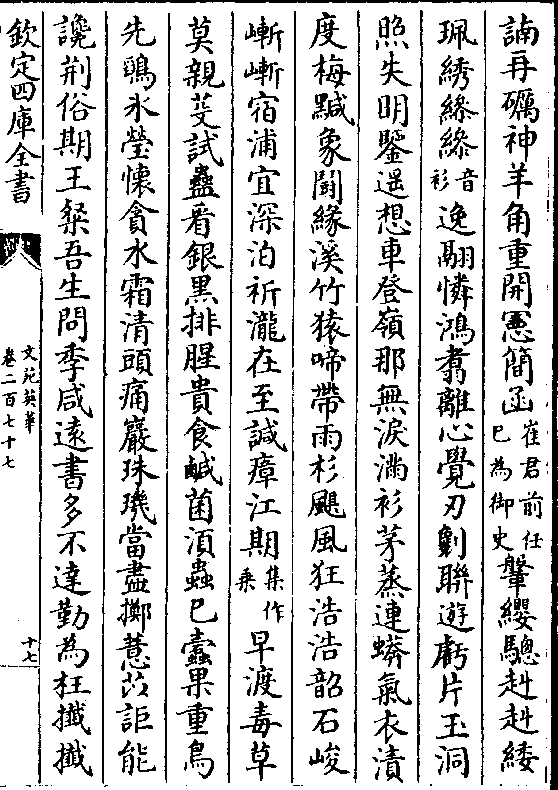 諵再礪神羊角重開憲簡函崔君前任已為御史鞶纓驄赳赳緌
珮綉縿縿音衫逸翮憐鴻翥離心覺刃劖聯遊虧片玉洞
照失明鑒遥想車登嶺那無淚滿衫茅蒸連蟒氣衣漬
度梅䵟象鬭緣溪竹猿啼帶雨杉颶風狂浩浩韶石峻
嶄嶄宿浦宜深泊祈瀧在至諴瘴江期集作乘早渡毒草
莫親芟試蠱看銀黑排腥貴食鹹菌湏蟲已蠧果重鳥
先鵮氷瑩懐貪水霜清頭痛巖珠璣當盡擲薏苡詎能
讒荆俗期王粲吾生問季咸逺書多不達勤為枉攕攕
欽定四庫全書
文苑英華
卷二百七十七
十七